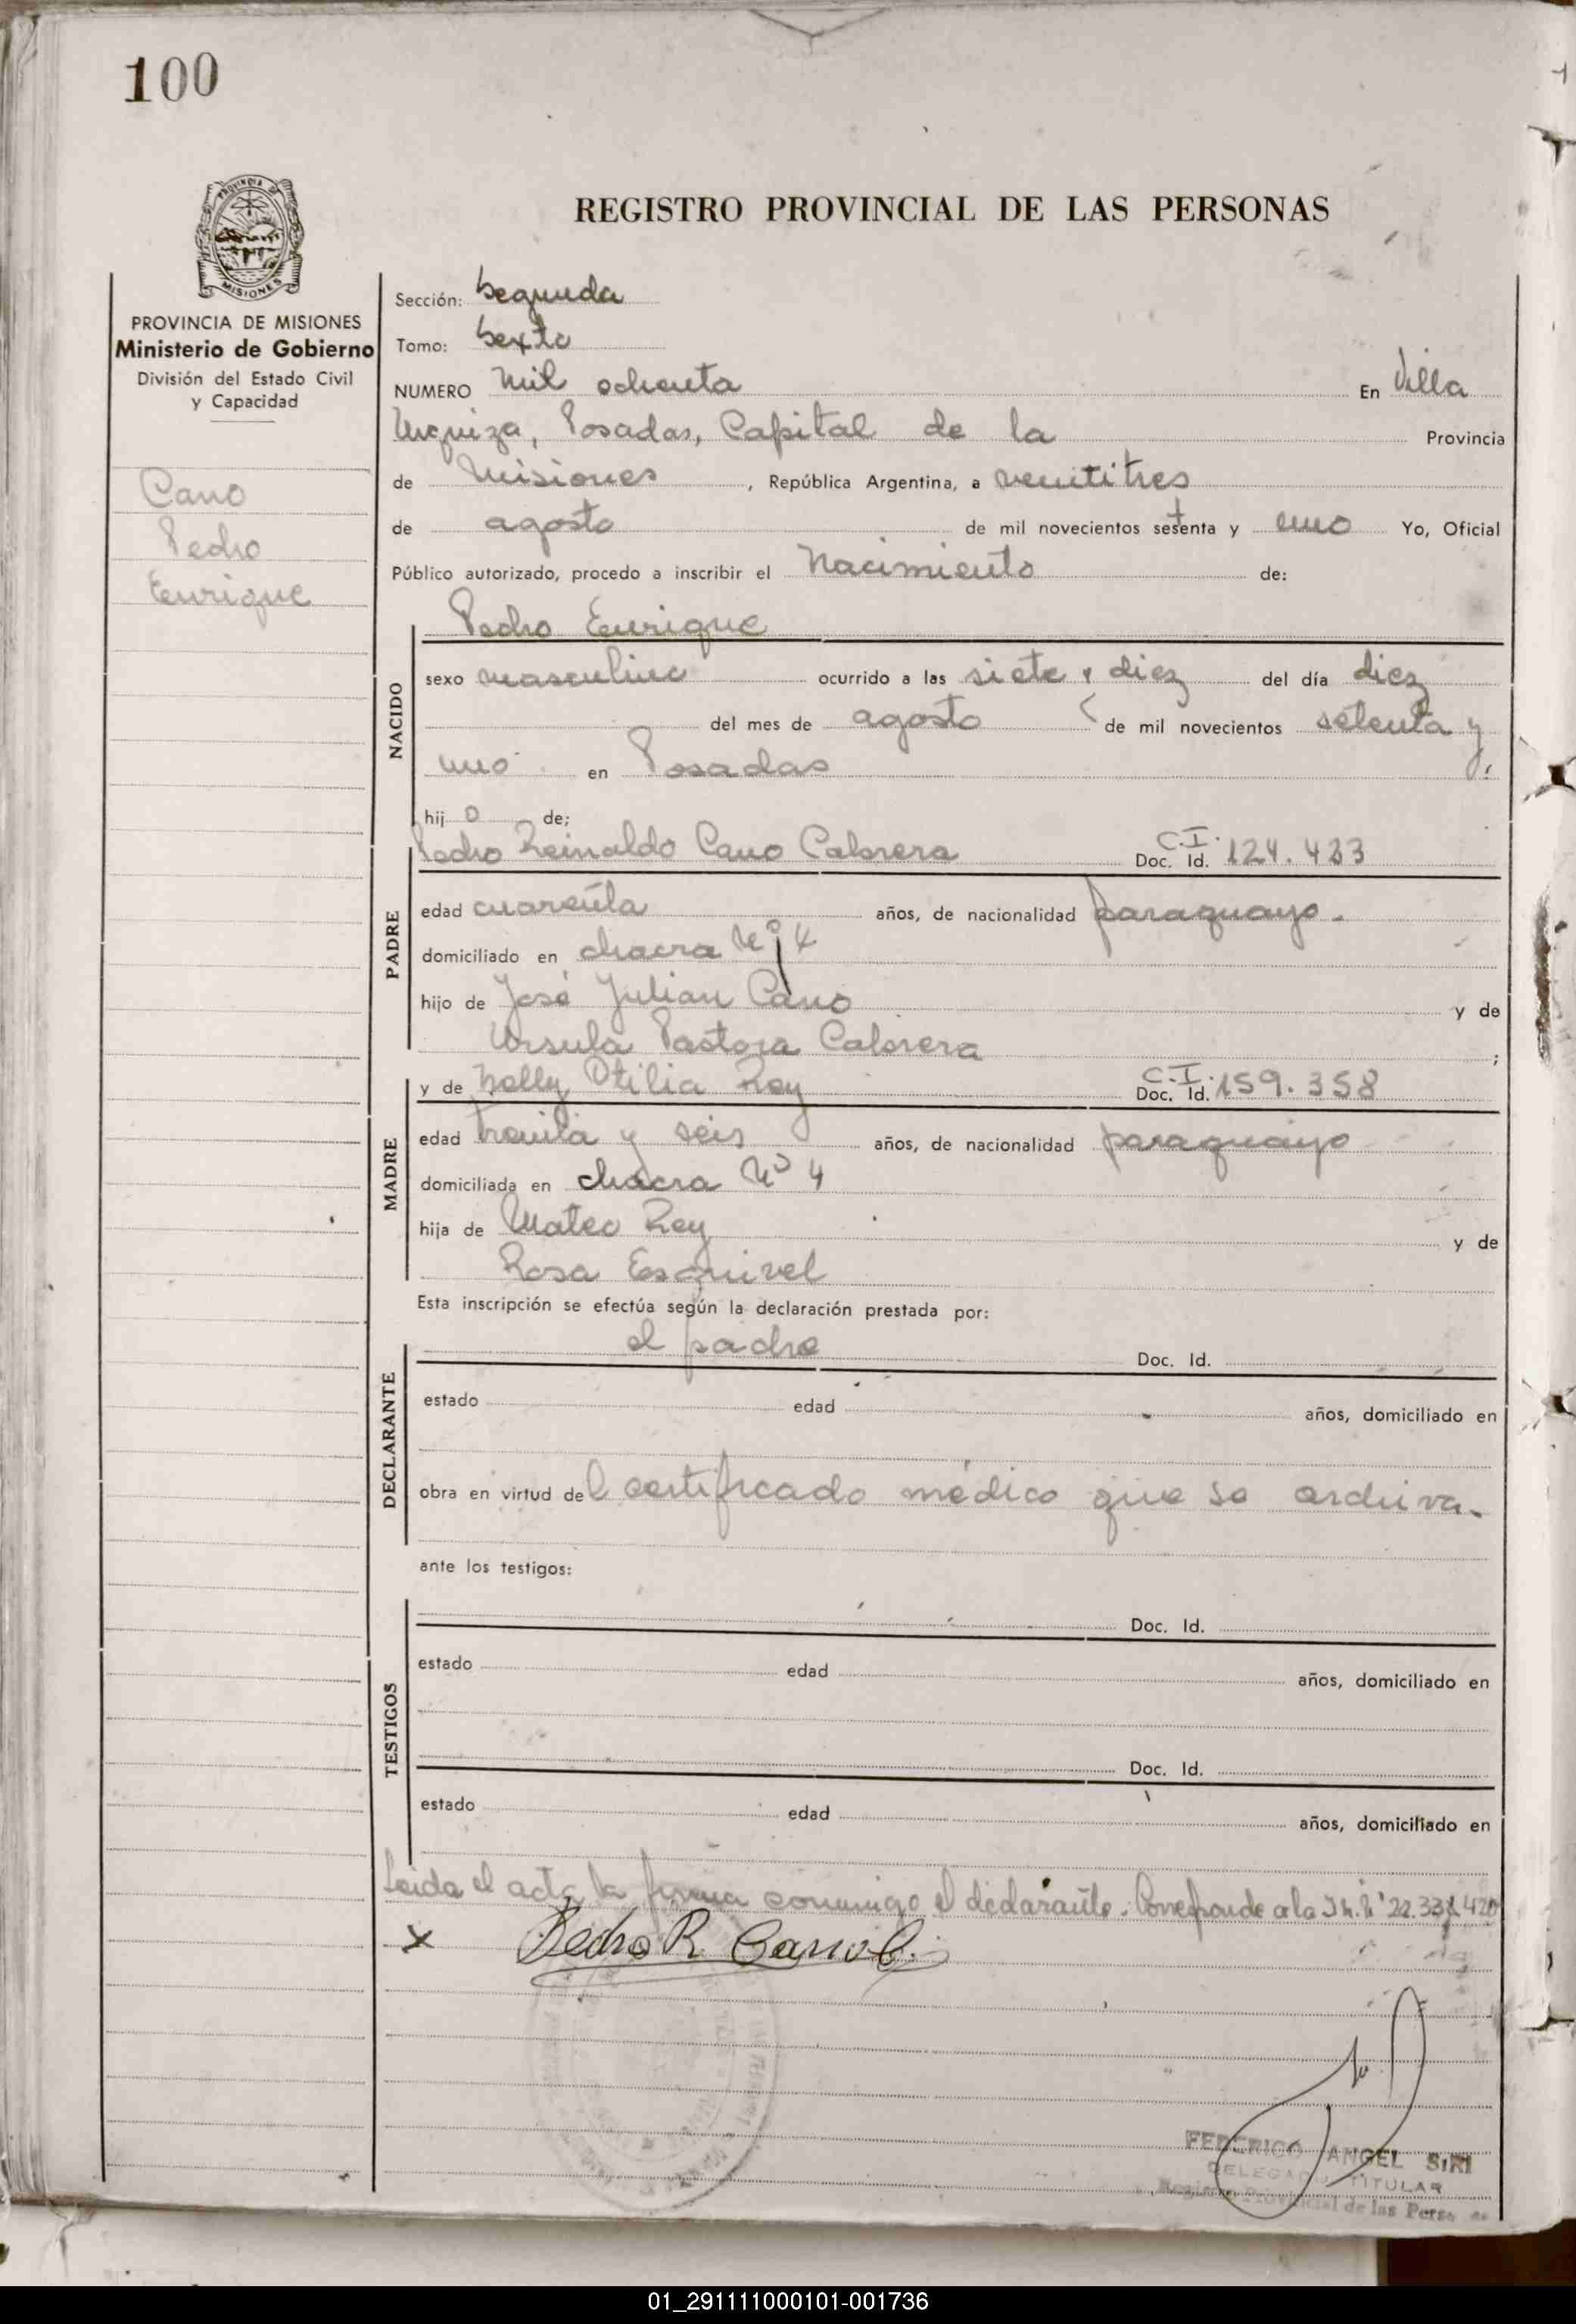 100
PROVINCIA DE
MISIONES
REGISTRO PROVINCIAL DE LAS PERSONAS
PROVINCIA DE MISIONES
Ministerio de Gobierno
División del Estado Civil
y Capacidad
Cano
Pedro
Enrique
Sección: Segunda
Tomo: Sexto
NUMERO Mil ochenta En Villa
Urquiza, Posadas, Capital de la Provincia
de Misiones, República Argentina, a veintitres
de agosto de mil novecientos setenta y uno Yo, Oficial
Público autorizado, procedo a inscribir el Nacimiento de:
Pedro Enrique
NACIDO
sexo masculino ocurrido a las siete y diez del día diez
del mes de agosto de mil novecientos setenta y
uno en Posadas
hijo de;
Pedro Reinaldo Cano Cabrera C.I. Doc. Id. 124.433
PADRE
edad cuarenta años, de nacionalidad paraguayo.
domiciliado en chacra Nº 4
hijo de José Julian Cano y de
Ursula Pastora Cabrera ;
y de Nelly Otilia Rey C.I. Doc. Id. 159.358
MADRE
edad treinta y seis años, de nacionalidad paraguayo
domiciliada en chacra Nº 4
hija de Mateo Rey y de
Rosa Esquivel
Esta inscripción se efectúa según la declaración prestada por:
el padre Doc. Id.
DECLARANTE
estado edad años, domiciliado en
obra en virtud del certificado médico que se archiva.
ante los testigos:
Doc. Id.
TESTIGOS
estado edad años, domiciliado en
Doc. Id.
estado edad años, domiciliado en
Leida el acta la firma conmigo el declarante. Corresponde a la
x Pedro R. Cano C.
FEDERICO ANGEL SIRI
DELEGADO TITULAR
Registro Provincial de las Perso
01_291111000101-001736